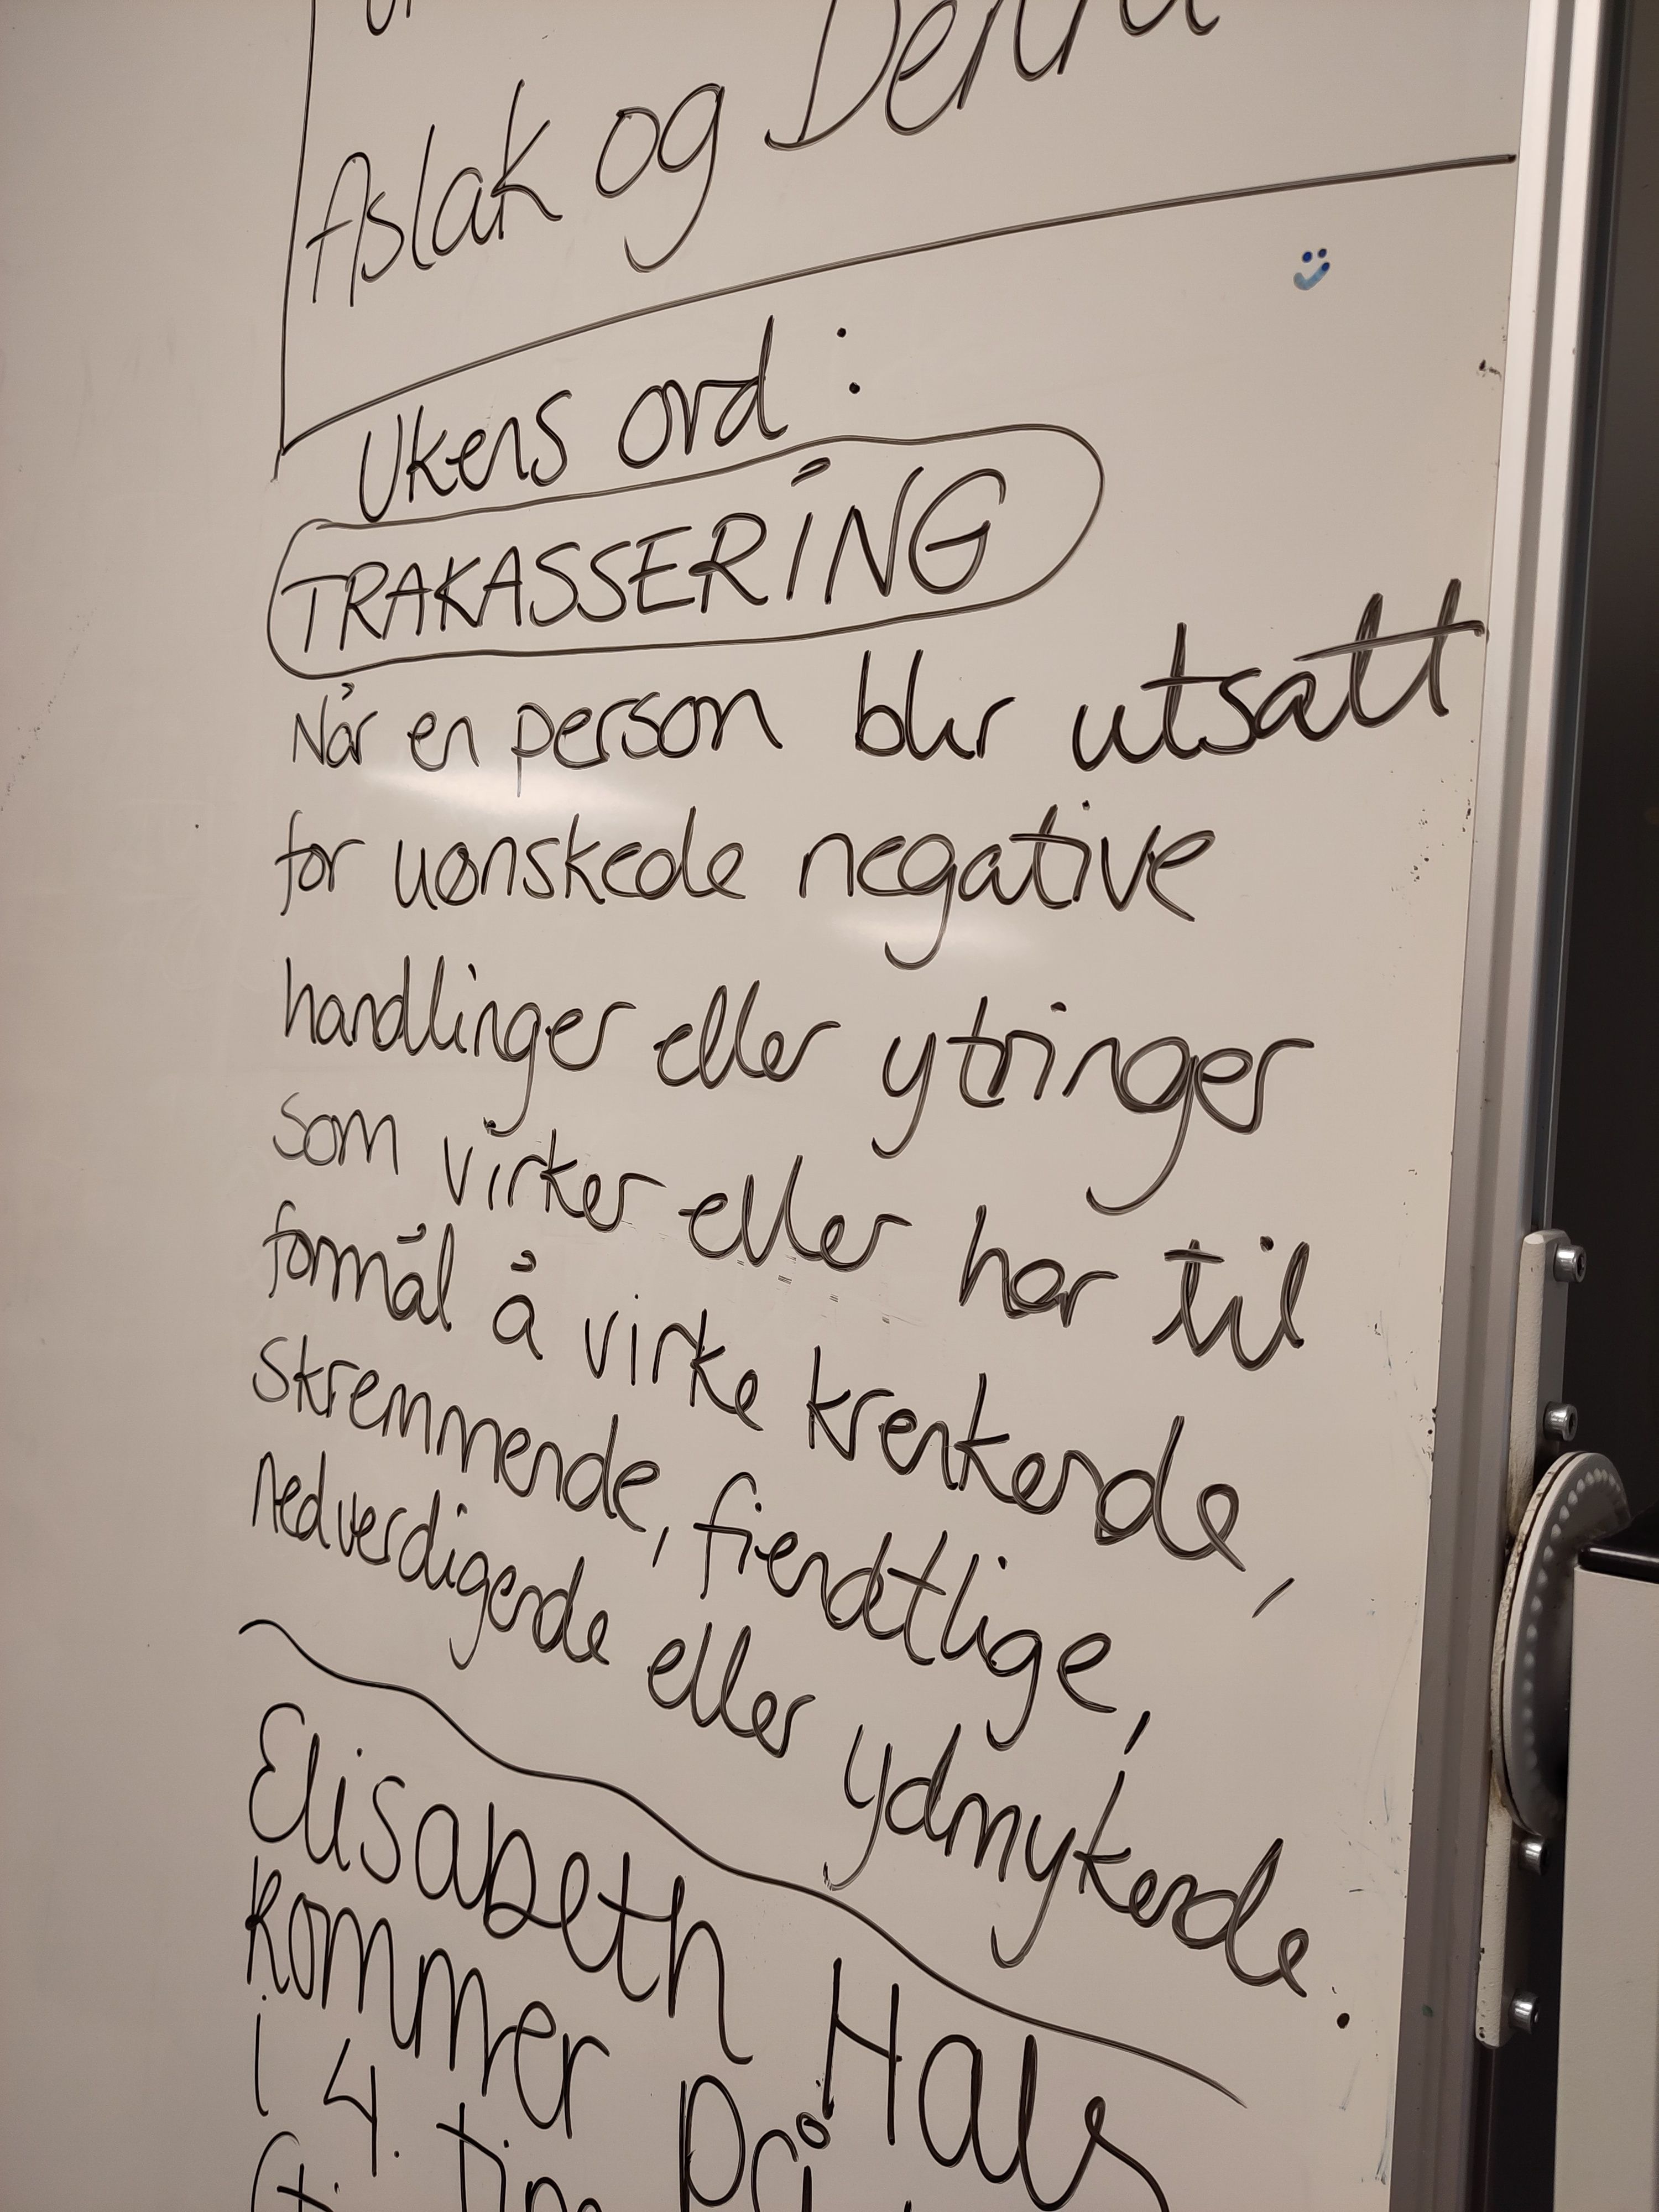 Aslak og
Ukens ord :
TRAKASSERING
Når en person blir utsatt
for uønskede negative
handlinger eller ytringer
som virker eller har til
formål å virke krenkende,
skremmende, fiendtlige,
nedverdigende eller ydmykende.
Elisabeth
kommer på
i 4. tim